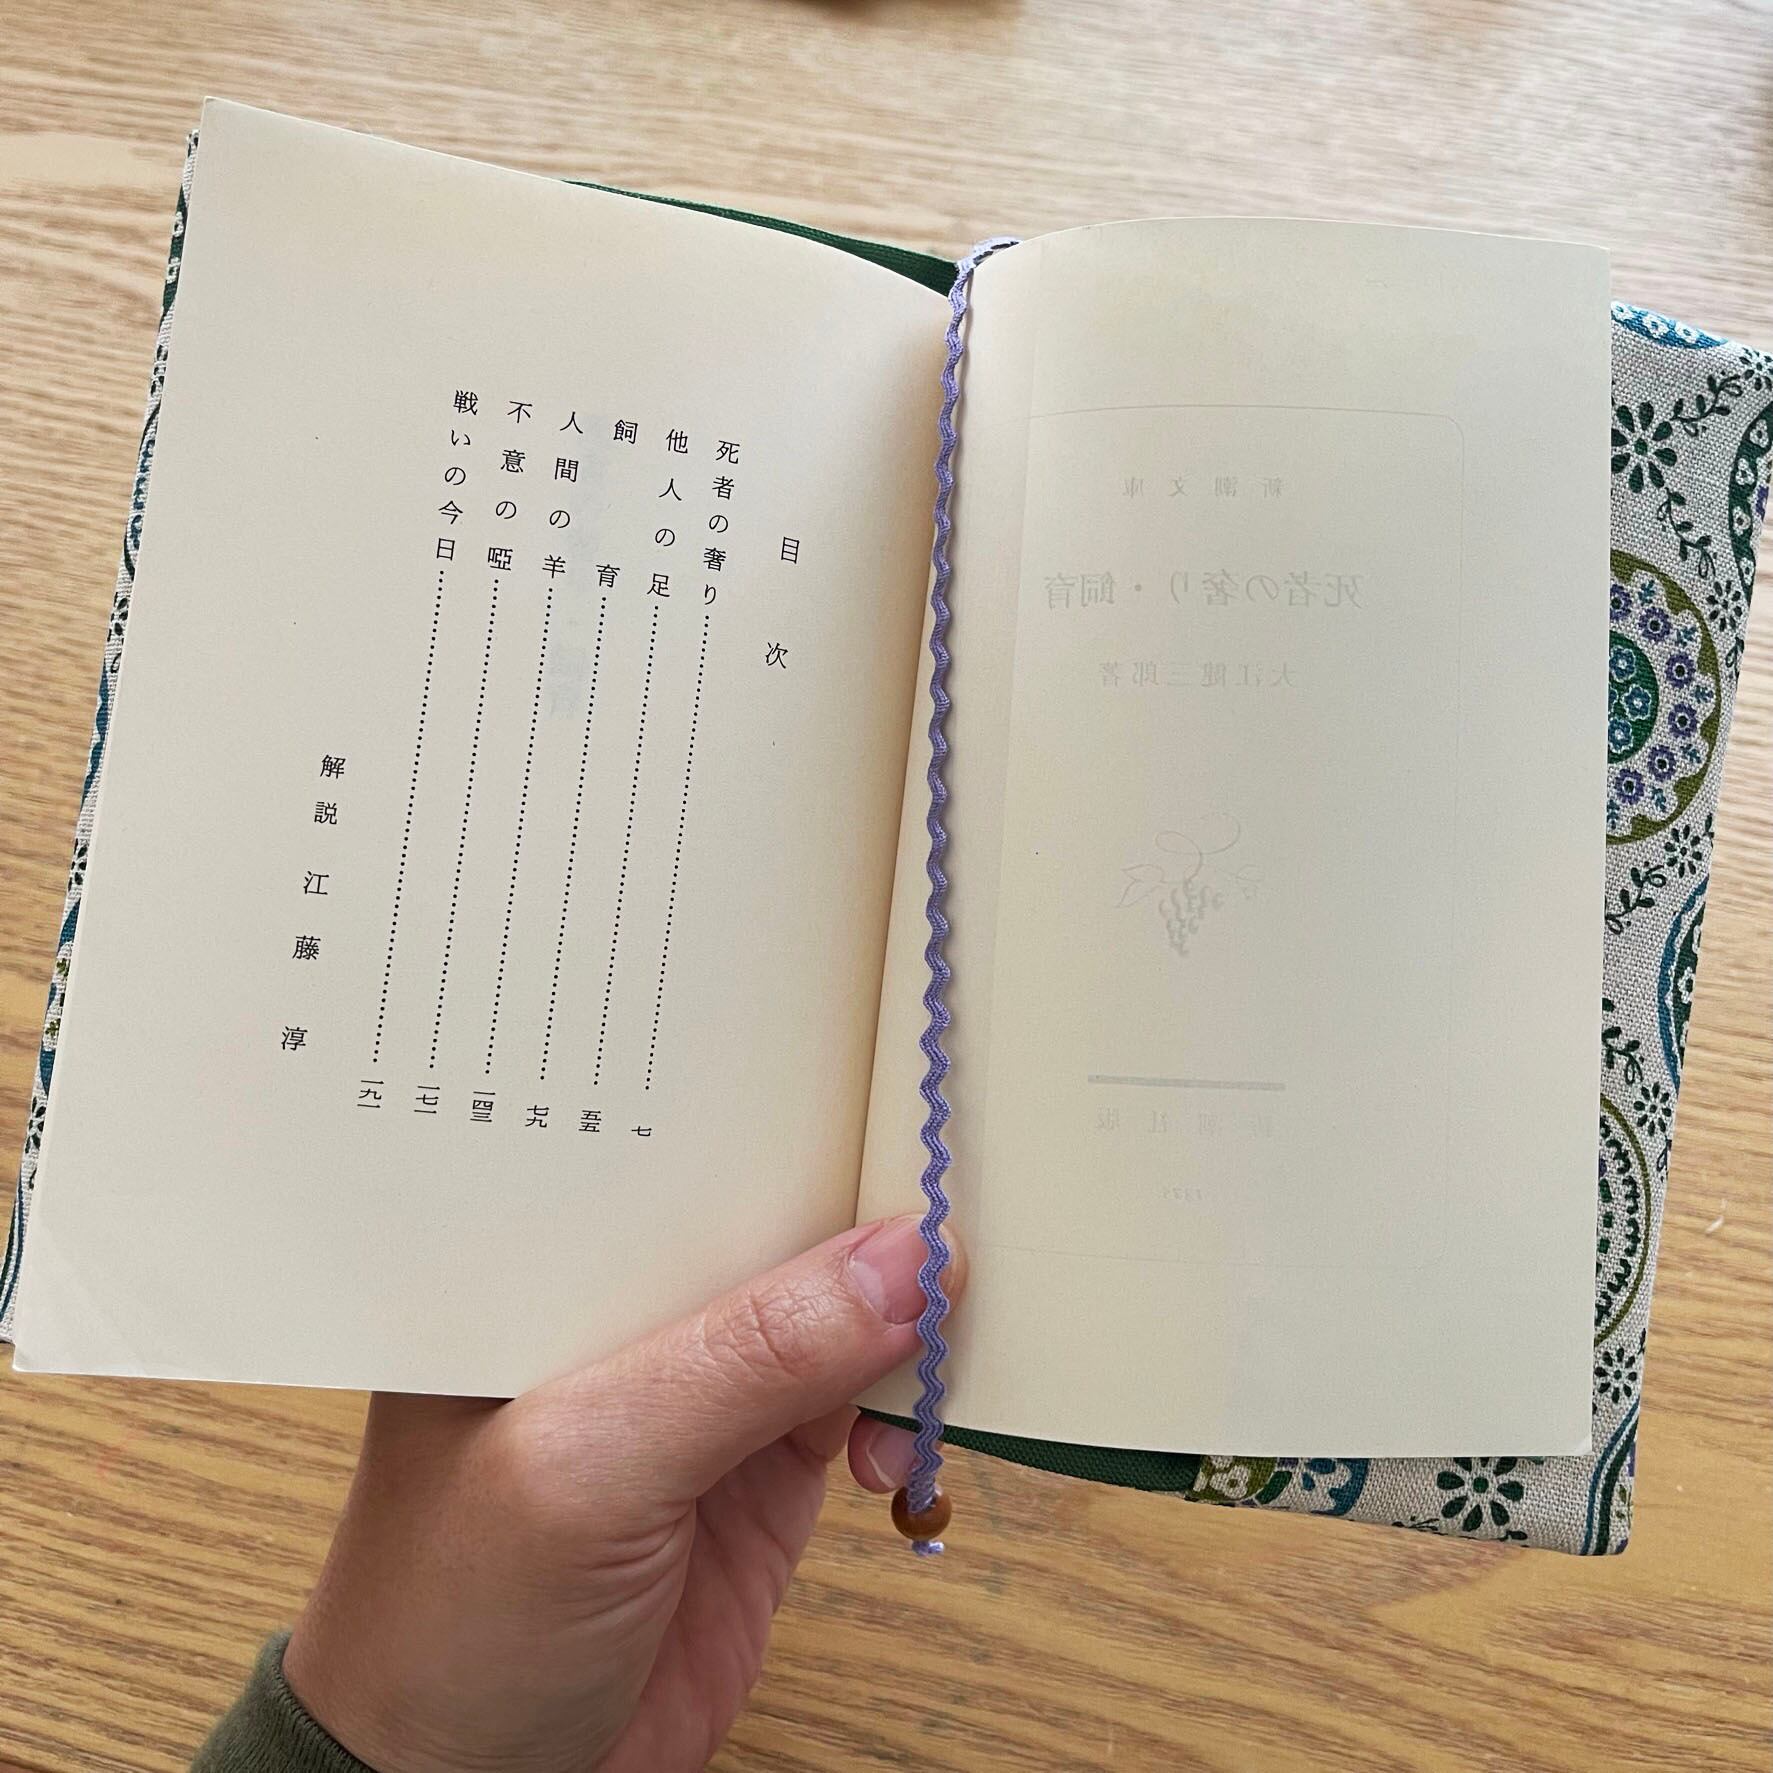 新潮文庫
死者の奢り・飼育
大江健三郎著
新潮社版
目次
死者の奢り……七
他人の足……五五
飼育……七九
人間の羊……一四三
不意の啞……一七一
戦いの今日……一九一
解説 江藤淳